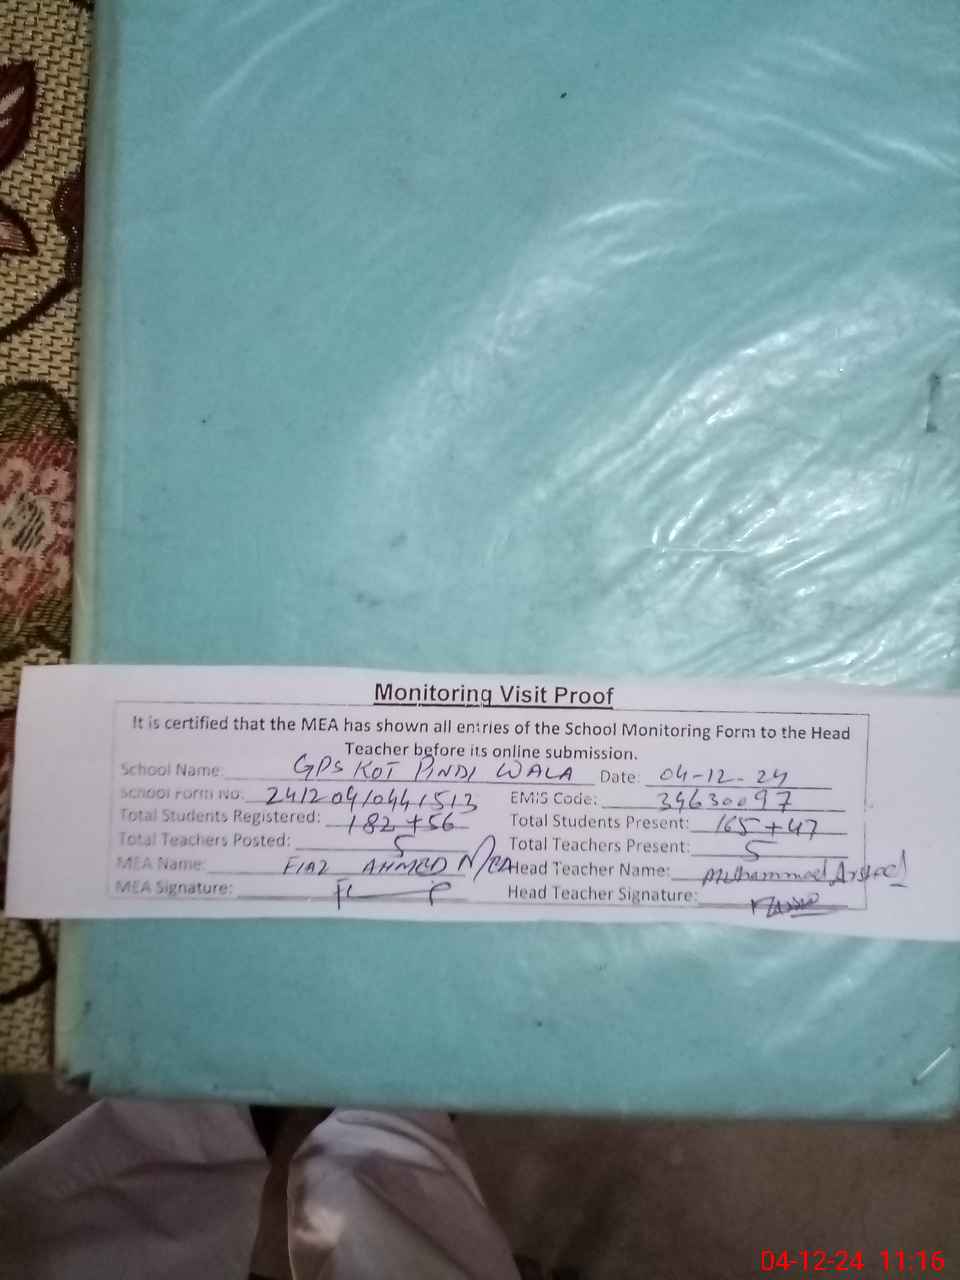 Monitoring Visit Proof
It is certified that the MEA has shown all entries of the School Monitoring Form to the Head
Teacher before its online submission.
School Name: GPS KOT PINDI WALA Date: 04-12-24
School Form No: 241204/0441513 EMIS Code: 34630097
Total Students Registered: 182+56 Total Students Present: 165+47
Total Teachers Posted: 5 Total Teachers Present: 5
MEA Name: FIAZ AHMED MEA Head Teacher Name: Muhammad Arshad
MEA Signature: Head Teacher Signature:
04-12-24 11:16